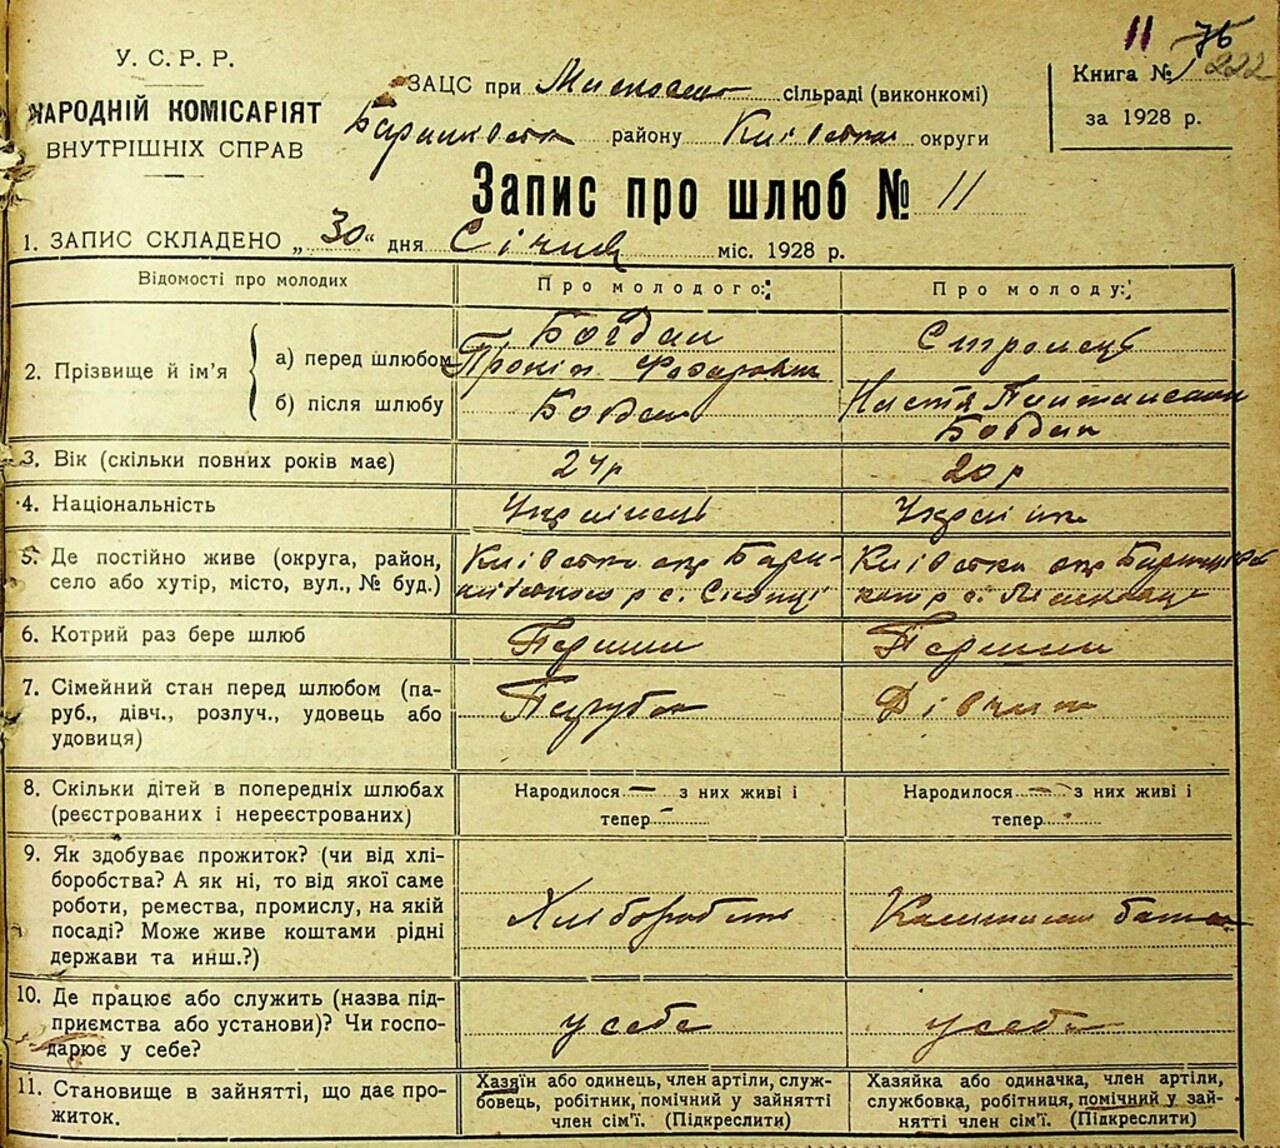 11 76
У. С. Р. Р.
НАРОДНІЙ КОМІСАРІЯТ
ВНУТРІШНІХ СПРАВ
ЗАЦС при сільраді (виконкомі)
району округи
Книга № 222
за 1928 р.
Запис про шлюб № 11
1. ЗАПИС СКЛАДЕНО „ 30 “ дня Січня міс. 1928 р.
Відомості про молодих
Про молодого:
Про молоду:
2. Прізвище й ім'я
а) перед шлюбом
Богдан
Прокіп
б) після шлюбу
Богдан
Настя
Богдан
3. Вік (скільки повних років має)
24 р
20 р
4. Національність
Українець
Українка
5. Де постійно живе (округа, район,
село або хутір, місто, вул., № буд.)
Київська окр Бари-
шівського р с. Скопці
Київська окр
6. Котрий раз бере шлюб
Перший
Перший
7. Сімейний стан перед шлюбом (па-
руб., дівч., розлуч., удовець або
удовиця)
Парубок
Дівчина
8. Скільки дітей в попередніх шлюбах
(реєстрованих і нереєстрованих)
Народилося — з них живі і
тепер -
Народилося — з них живі і
тепер -
9. Як здобуває прожиток? (чи від хлі-
боробства? А як ні, то від якої саме
роботи, ремества, промислу, на якій
посаді? Може живе коштами рідні
держави та инш.?)
Хліборобств
Коштами батька
10. Де працює або служить (назва під-
приємства або установи)? Чи госпо-
дарює у себе?
у себе
у себе
11. Становище в зайнятті, що дає про-
житок.
Хазяїн або одинець, член артіли, служ-
бовець, робітник, помічний у зайнятті
член сім'ї. (Підкреслити)
Хазяйка або одиначка, член артіли,
службовка, робітниця, помічний у зай-
нятті член сім'ї. (Підкреслити)